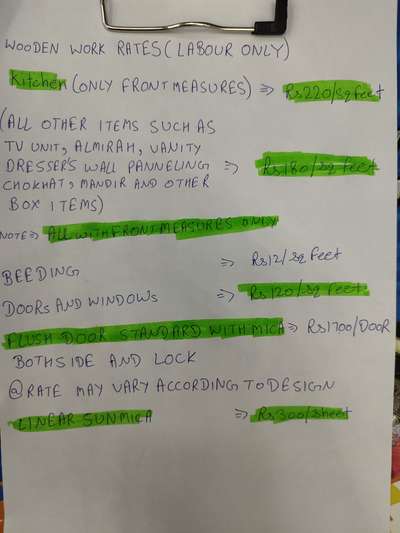 WOODEN WORK RATES (LABOUR ONLY)
Kitchen (ONLY FRONT MEASURES) => Rs220/sq feet
(ALL OTHER ITEMS SUCH AS
TV UNIT, ALMIRAH, VANITY
DRESSER'S WALL PANNELING => Rs180/sq feet
CHOKHAT, MANDIR AND OTHER
BOX ITEMS)
NOTE => ALL WITH FRONT MEASURES ONLY
BEEDING => Rs12/sq feet
DOORS AND WINDOWS => Rs120/sq feet
FLUSH DOOR STANDARD WITH MICA => Rs1700/DOOR
BOTHSIDE AND LOCK
@RATE MAY VARY ACCORDING TO DESIGN
LINEAR SUNMICA => Rs300/sheet